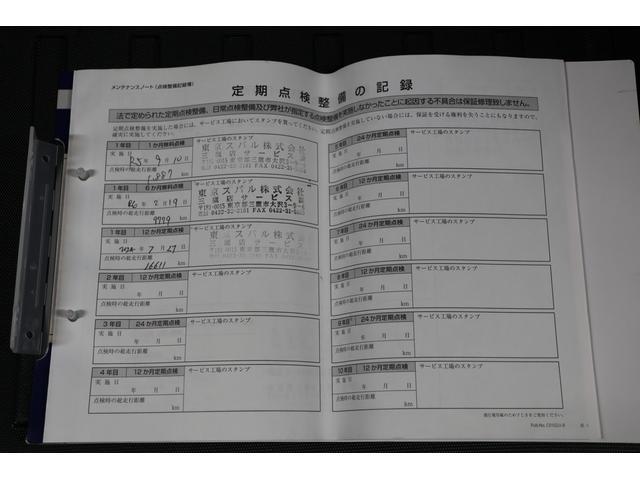 メンテナンスノート(点検整備記録簿)
定期点検整備の記録
法で定められた定期点検整備、日常点検整備及び弊社が指定する点検整備を実施しなかったことに起因する不具合は保証修理致しません。
定期点検整備を実施した場合には、サービス工場においてスタンプを貰ってください。
確実に実施してください。
1年目 1か月無料点検
サービス工場のスタンプ
実施日
R5年9月10日
点検時の総走行距離
1,887 km
東京スバル株式会社
三鷹店サービス課
〒181-0015 東京都三鷹市大沢3-9-6
1年目 6か月無料点検
サービス工場のスタンプ
実施日
R6年2月19日
点検時の総走行距離
9779 km
東京スバル株式会社
三鷹店サービス課
〒181-0015 東京都三鷹市大沢3-9-6
1年目 12か月定期点検
サービス工場のスタンプ
実施日
2024年7月27日
点検時の総走行距離
16611 km
東京スバル株式会社
三鷹店サービス課
2年目 12か月定期点検
サービス工場のスタンプ
実施日
年 月 日
点検時の総走行距離
km
3年目 24か月定期点検
サービス工場のスタンプ
実施日
年 月 日
点検時の総走行距離
km
4年目 12か月定期点検
サービス工場のスタンプ
実施日
年 月 日
点検時の総走行距離
km
24か月定期点検
サービス工場のスタンプ
年 月 日
点検時の総走行距離
km
12か月定期点検
サービス工場のスタンプ
年 月 日
点検時の総走行距離
km
7年目 24か月定期点検
サービス工場のスタンプ
年 月 日
点検時の総走行距離
km
8年目 12か月定期点検
サービス工場のスタンプ
実施日
年 月 日
点検時の総走行距離
km
9年目 24か月定期点検
サービス工場のスタンプ
実施日
年 月 日
点検時の総走行距離
km
10年目 12か月定期点検
サービス工場のスタンプ
実施日
年 月 日
点検時の総走行距離
km